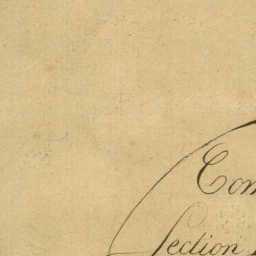 Com
Section